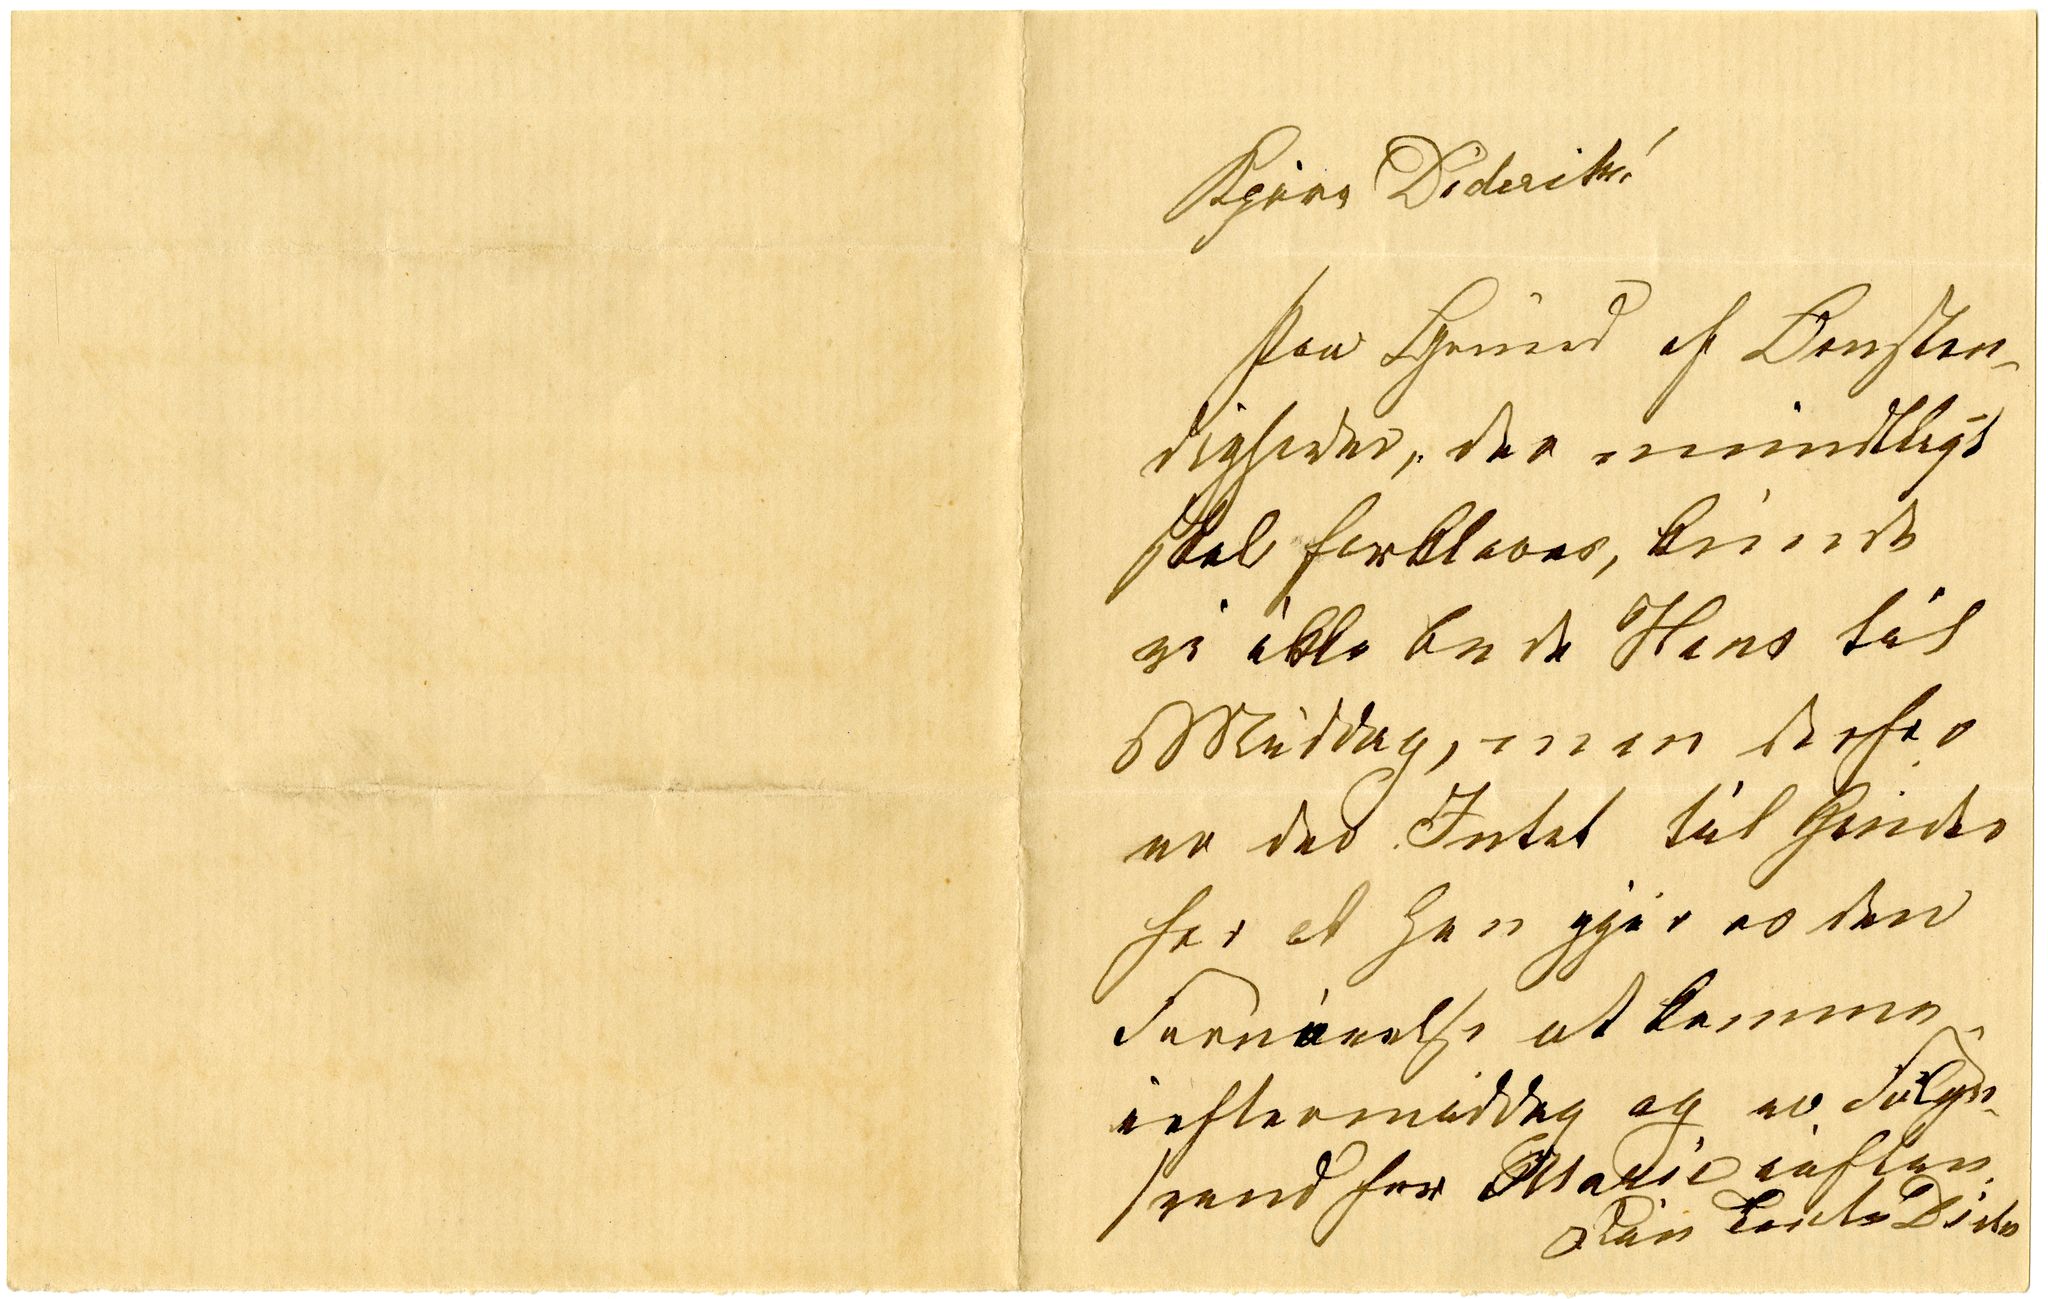 Kjære Diderikke!
Paa Grund af Omsten-
digheder, der mundtligt
skal forklares, kunde
vi ikke bede Hans til
Middag, men derfor
er der Intet til Hinder
for at han gjør os den
Fornøielse at komme
ieftermiddag og er Følge-
svend for Marie iaften.
Din Tante Dida